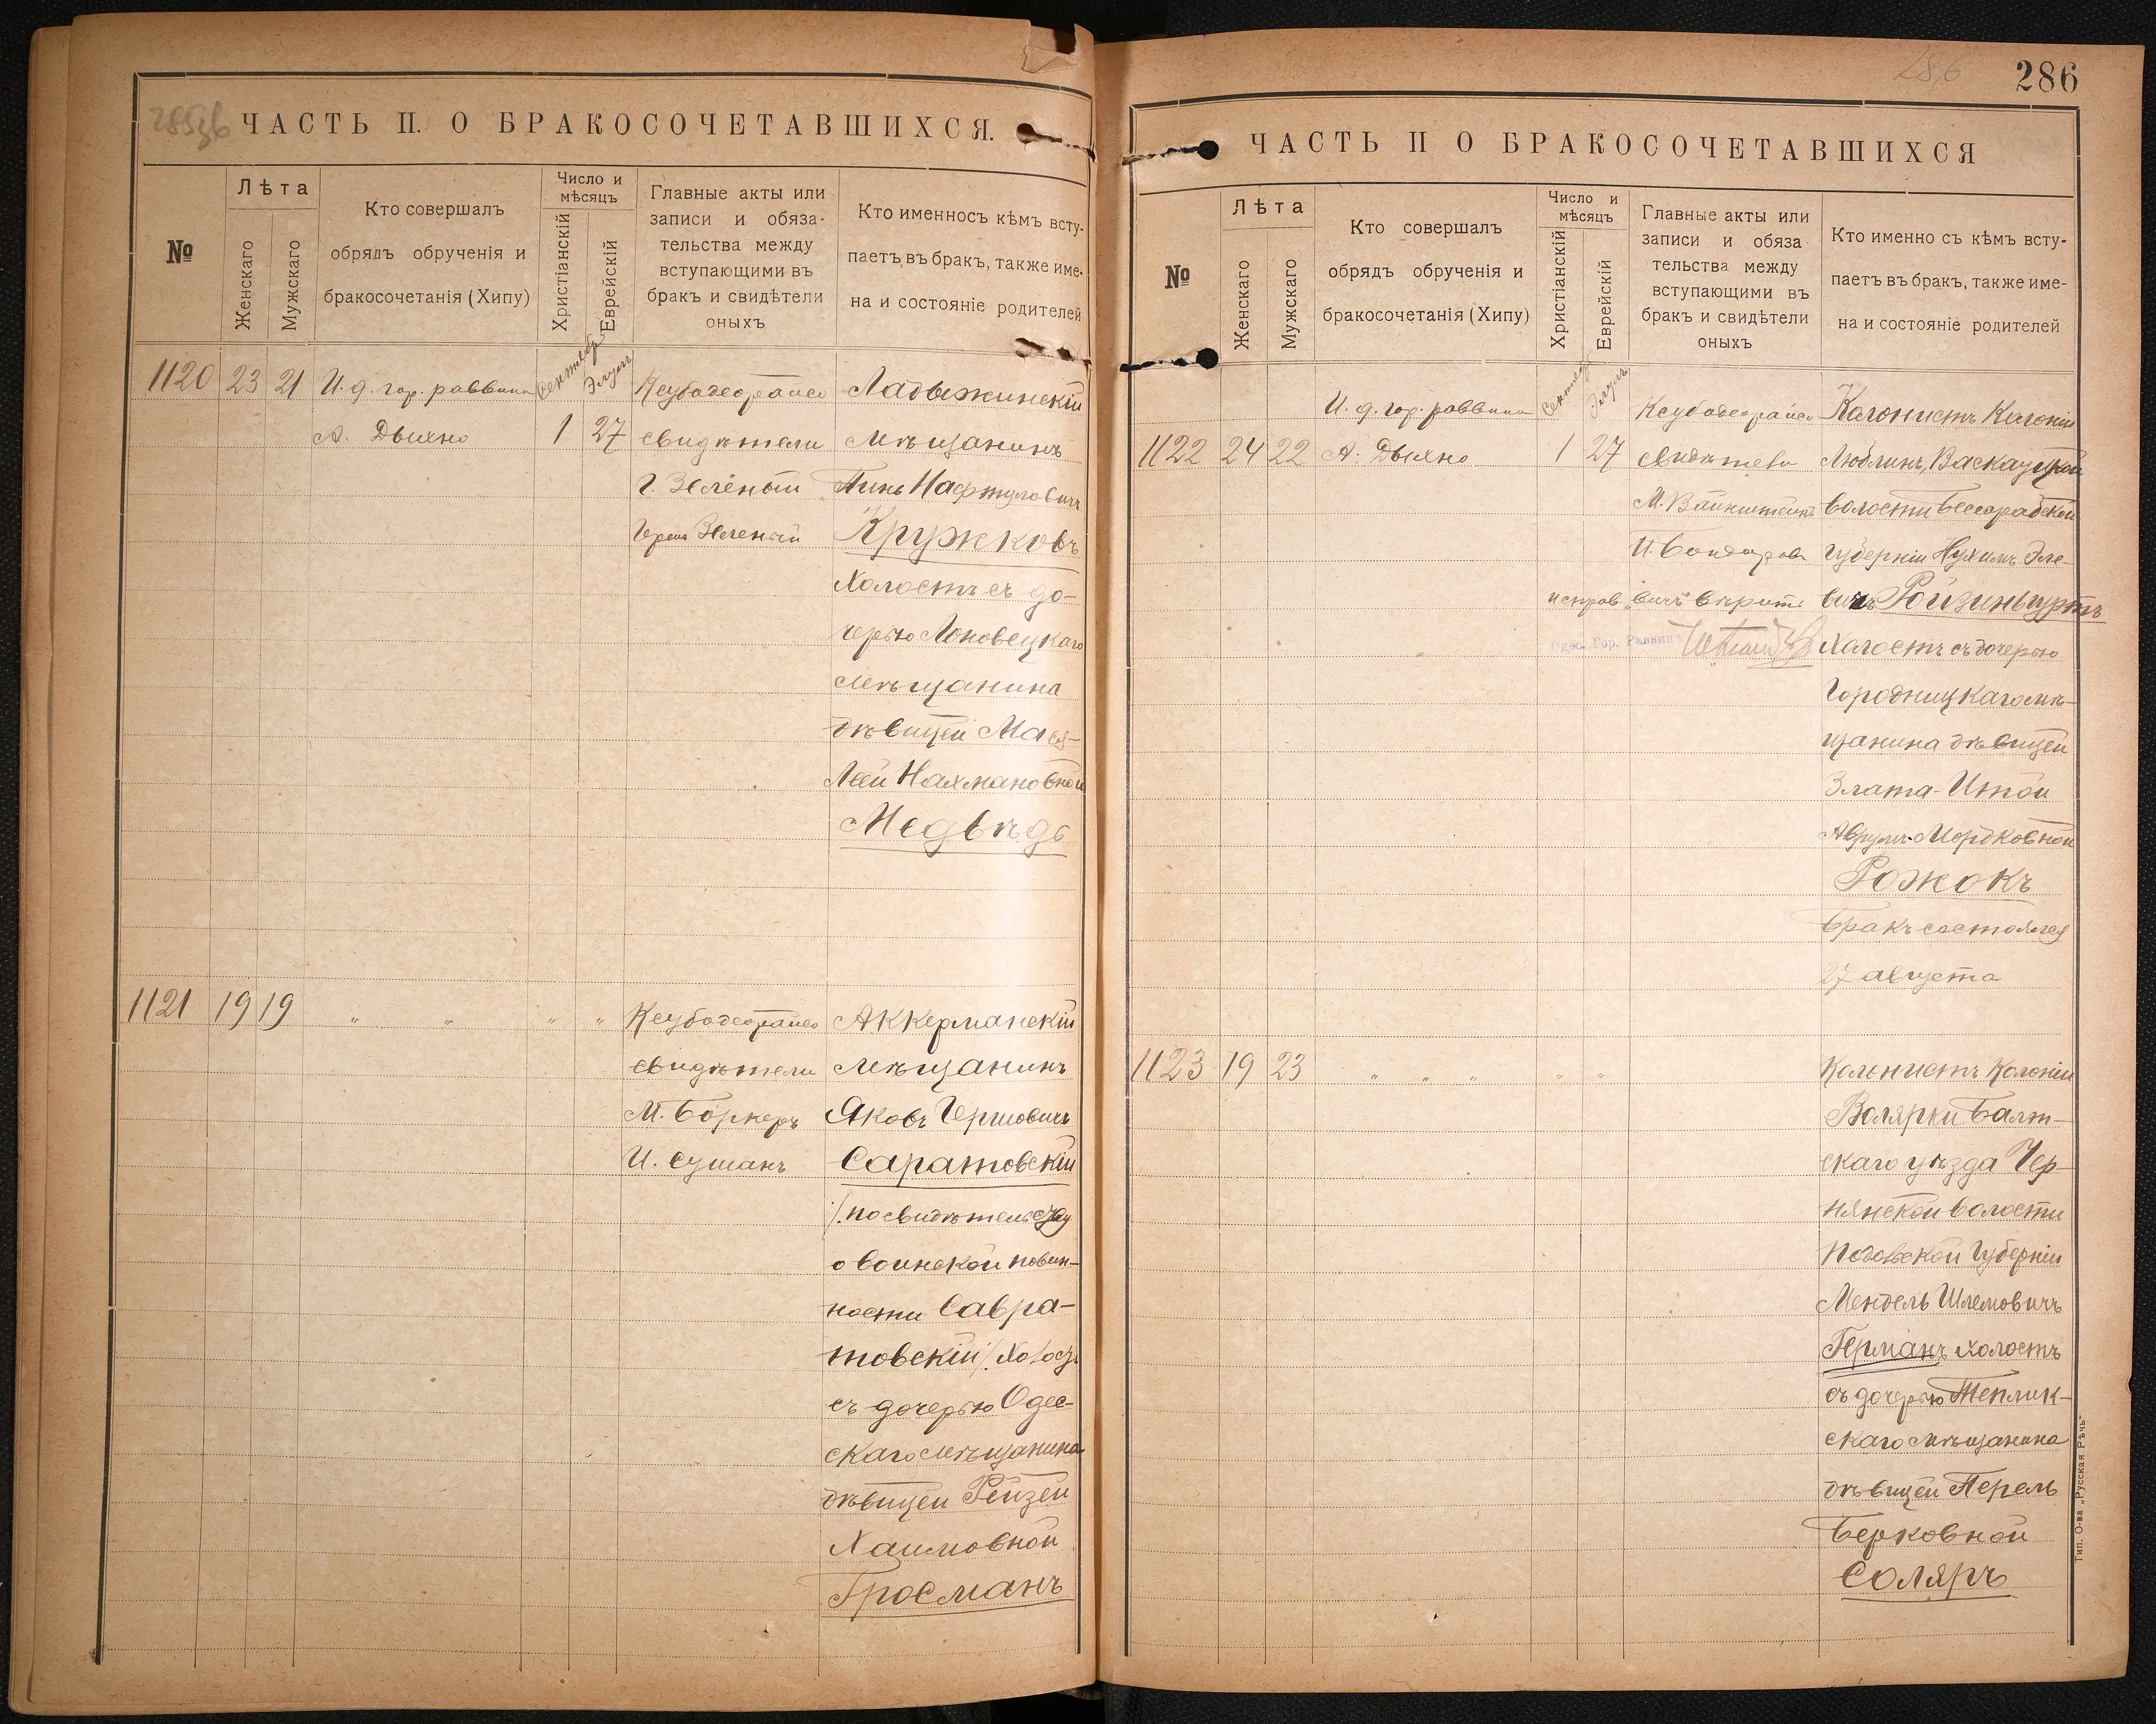 285 об
ЧАСТЬ II. О БРАКОСОЧЕТАВШИХСЯ.
№
Лѣта
Женскаго
Мужскаго
Кто совершалъ
обрядъ обрученія и
бракосочетанія (Хипу)
Число и
мѣсяцъ
Христіанскій
Еврейскій
Главные акты или
записи и обяза-
тельства между
вступающими въ
бракъ и свидѣтели
оныхъ
Кто именносъ кѣмъ всту-
паетъ въ бракъ, также име-
на и состояніе родителей
1120
23
21
И. д. гор. раввина
А. Дыхно
Сентябр
1
Элулъ
27
свидѣтели
Г. Зелёный
Зеленый
Ладыжинскій
мѣщанинъ
Пинь Нафтуловичъ
Кружковъ
холостъ съ до-
черью Яновецкаго
мѣщанина
дѣвицей Мася-
Леей Нахмановной
Медвѣдь
1121
19
19
" "
"
"
свидѣтели
М. Боркеръ
И. Сушанъ
Аккерманскій
мѣщанинъ
Яковъ Гершовичъ
Саратовскій
/. по свидѣтельству
о воинской повин-
ности Савра-
товскій /. холостъ
съ дочерью Одес-
скаго мѣщанина
дѣвицей Рейзей
Хаимовной
Гросманъ
286
286
ЧАСТЬ II О БРАКОСОЧЕТАВШИХСЯ
№
Лѣта
Женскаго
Мужскаго
Кто совершалъ
обрядъ обрученія и
бракосочетанія (Хипу)
Число и
мѣсяцъ
Христіанскій
Еврейскій
Главные акты или
записи и обяза
тельства между
вступающими въ
бракъ и свидѣтели
оныхъ
Кто именно съ кѣмъ всту-
паетъ въ бракъ, также име-
на и состояніе родителей
1122
24
22
И. д. гор. раввина
А. Дыхно
Сентябр
1
Элулъ
27
свидѣтели
М. Вайнштейнъ
И. Бондарев
исправ. "вичъ" вѣрить
Одес. Гор. Раввинъ
Колонистъ Колоніи
Люблинъ, Васкауцкой
волости Бессарабской
Губерніи Нухимъ Эле-
вичъ Ройзинбуртъ
холостъ съ дочерью
Городницкаго мѣ-
щанина дѣвицей
Злата-Итой
Аврумъ-Мордковной
Рожокъ
Бракъ состоялся
27 августа
1123
19
23
" " "
"
"
Колонистъ Колоніи
Волярки Балт-
скаго уѣзда Чер-
нянской волости
Подольской Губерніи
Мендель Шлемовичъ
Германъ холостъ
съ дочерью Теплик-
скаго мѣщанина
дѣвицей Перель
Берковной
Соляръ
Тип. О-ва „Русская Рѣчь"